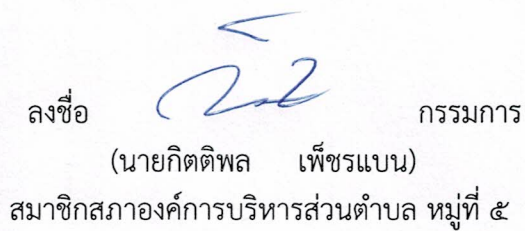 ลงชื่อ กรรมการ
(นายกิตติพล เพ็ชรแบน)
สมาชิกสภาองค์การบริหารส่วนตำบล หมู่ที่ ๕